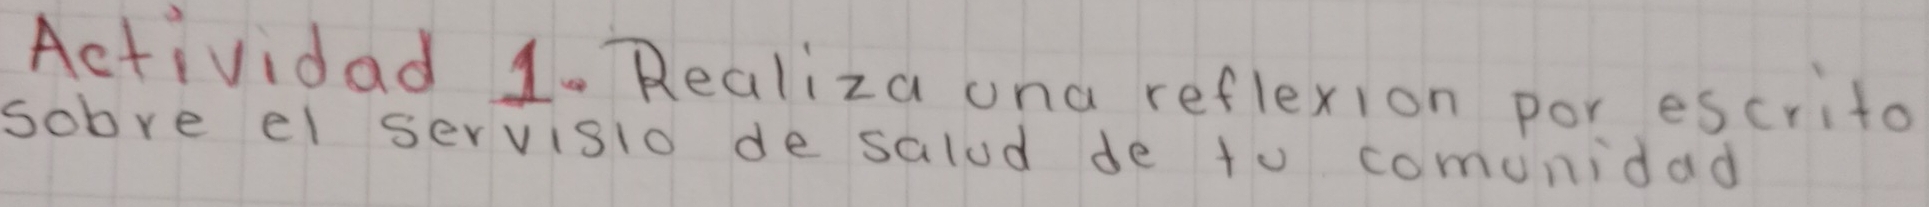 Actividad 1. Realiza una reflexion por escrito
sobre el servisio de salud de tu comunidad